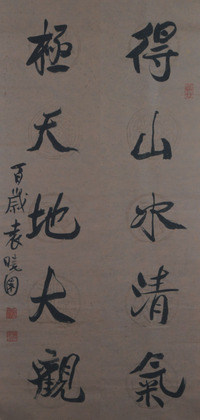 得山水清氣
極天地大觀
百歲袁曉園